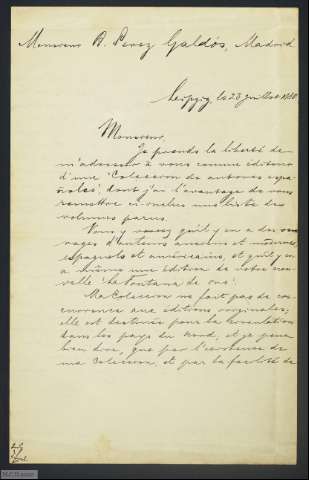 Monsieur B. Perez Galdós, Madrid
Leipzig, le 23 juillet
Monsieur,
Je prends la liberté de
m'adresser à vous comme éditeur
d'une "Coleccion de autores espa-
ñoles", dont j'ai l'avantage de vous
remettre ci-inclus une liste des
volumes parus.
Vous y verrez qu'il y en a des ou-
vrages d'auteurs anciens et modernes,
espagnols et américains, et qu'il y en
a même une édition de votre nou-
velle "La Fontana de oro".
Ma Coleccion ne fait pas de con-
currence aux éditions originales;
elle est destinée pour la circulation
dans les pays du Nord, et je puis
bien dire, que par l'existence de
ma Coleccion, et par la facilité de